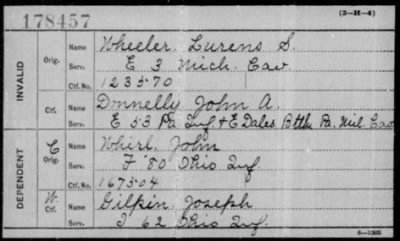 178457
(3-H-4)
INVALID
Orig. Name Wheeler, Lurens S.
Serv. E 3 Mich. Cav
Ctf. No. 123570
Ctf. Name Donnelly John A.
Serv. E 53 Pa Inf + E Dales Bttln Pa. Mil Cav
DEPENDENT
C Orig. Name Whirl, John
Serv. F 80 Ohio Inf.
Ctf. No. 167504
W. Ctf. Name Gilpin, Joseph
Serv. I 62 Ohio Inf.